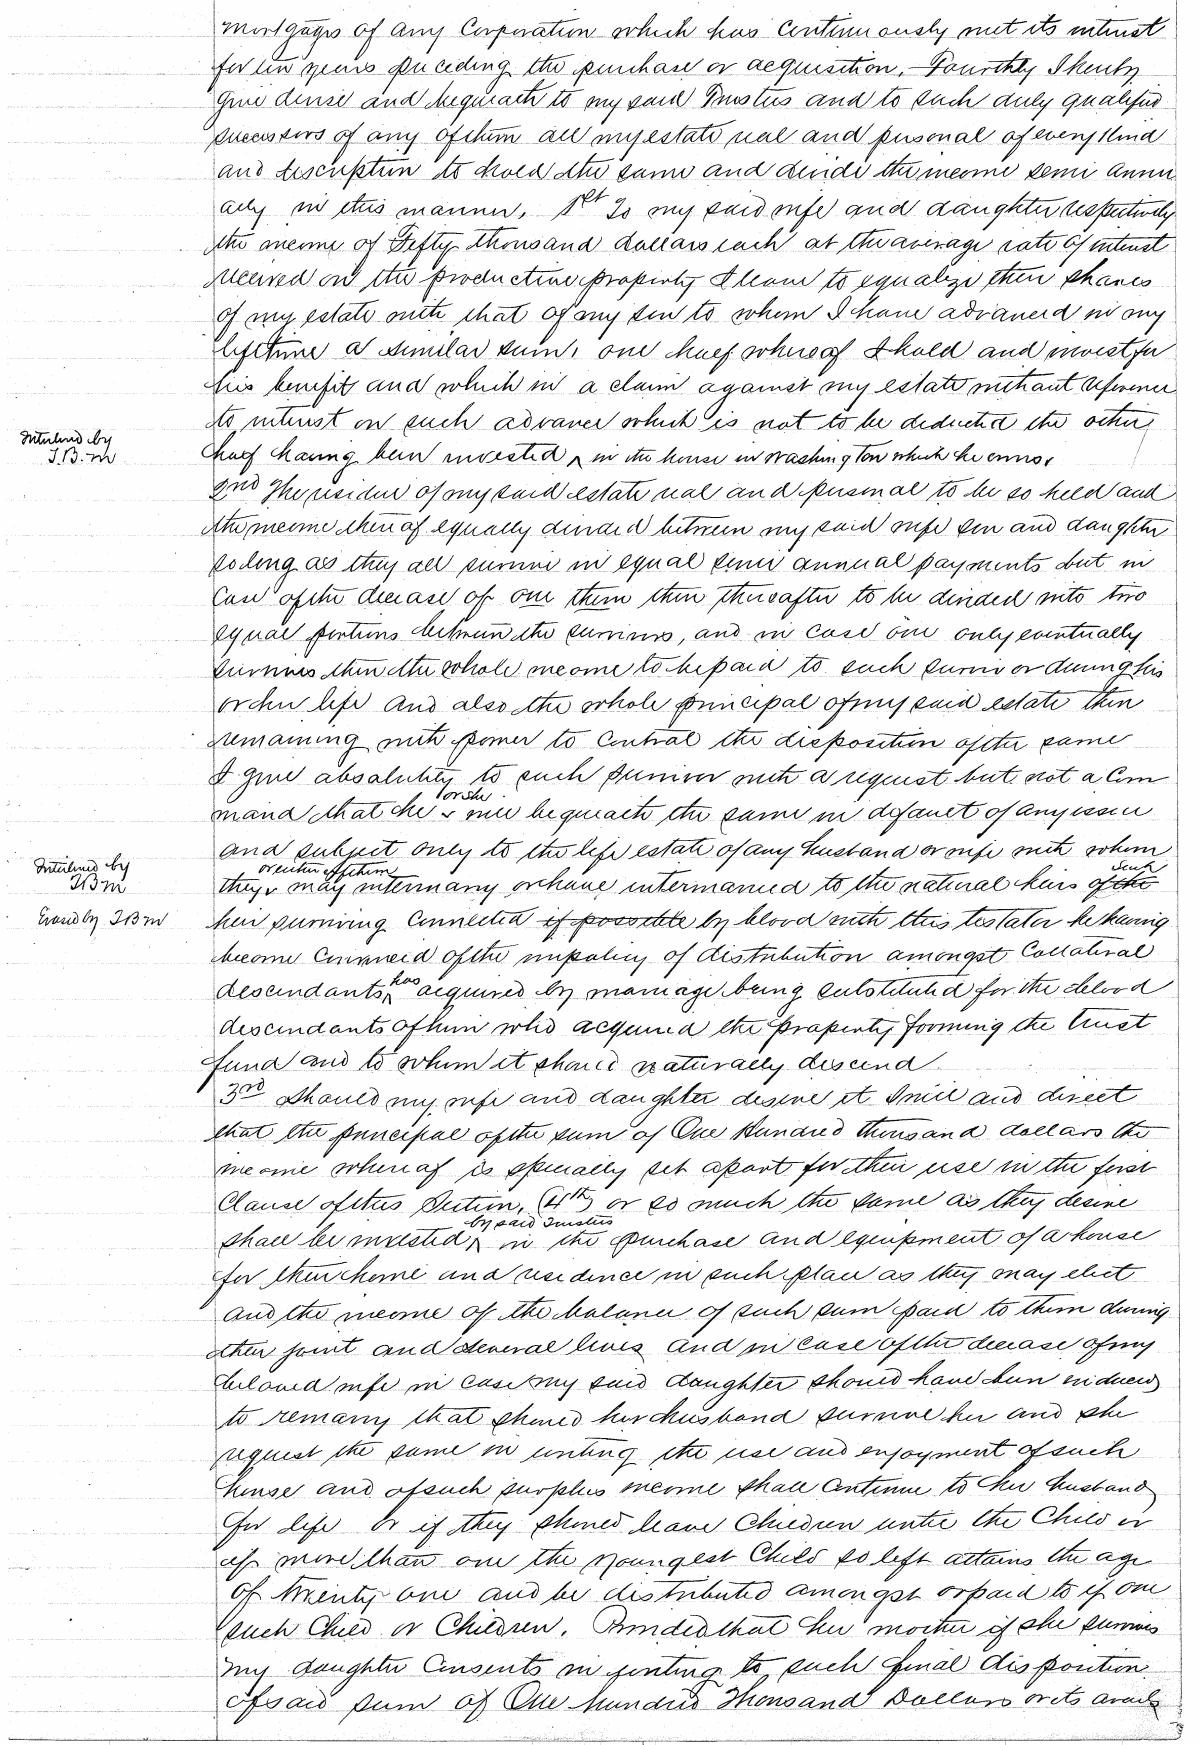 mortgages of any Corporation which has continuously met its interest
for ten years preceding the purchase or acquisition. Fourthly I hereby
give devise and bequeath to my said Trustees and to such duly qualified
successors of any of them all my estate real and personal of every kind
and description to hold the same and divide the income semi annu
ally in this manner. 1st To my said wife and daughter respectively
the income of Fifty thousand dollars each at the average rate of interest
received on the productive property I leave to equalize their shares
of my estate with that of my son to whom I have advanced in my
lifetime a similar sum, one half whereof I hold and invest for
his benefit and which in a claim against my estate without reference
to interest on such advance which is not to be deducted the other
Interlined by
T.B.M
half having been invested ^ in the house in Washington which he owns.
2nd The residue of my said estate real and personal to be so held and
the income thereof equally divided between my said wife son and daughter
so long as they all survive in equal semi annual payments but in
case of the decease of one them then thereafter to be divided into two
equal portions between the survivors, and in case one only eventually
survives then the whole income to be paid to such survivor during his
or her life and also the whole principal of my said estate then
remaining with power to control the disposition of the same
I give absolutely to such survivor with a request but not a Com
mand that he ^ or she will bequeath the same in default of any issue
and subject only to the life estate of any husband or wife with whom
Interlined by
TBM
they ^ or either of them may intermarry or have intermarried to the natural heirs of the such
Erased by TBM
heir surviving connected if possible by blood with this testator he having
become convinced of the impolicy of distribution amongst Collateral
descendants ^ has acquired by marriage being substituted for the blood
descendants of him who acquired the property forming the trust
fund and to whom it should naturally descend
3rd Should my wife and daughter desire it I will and direct
that the principal of the sum of One Hundred thousand dollars the
income whereof is specially set apart for their use in the first
Clause of this Section, (4th) or so much the same as they desire
shall be invested ^ by said Trustees in the purchase and equipment of a house
for their home and residence in such place as they may elect
and the income of the balance of such sum paid to them during
their joint and several lives and in case of the decease of my
beloved wife in case my said daughter should have been induced
to remarry that should her husband survive her and she
request the same in writing the use and enjoyment of such
house and of such surplus income shall continue to her husband
for life or if they should leave Children until the Child or
if more than one the youngest Child so left attains the age
of twenty one and be distributed amongst or paid to if one
such Child or Children. Provided that her mother if she survives
my daughter Consents in writing to such final disposition
of said sum of One hundred Thousand Dollars or its avails